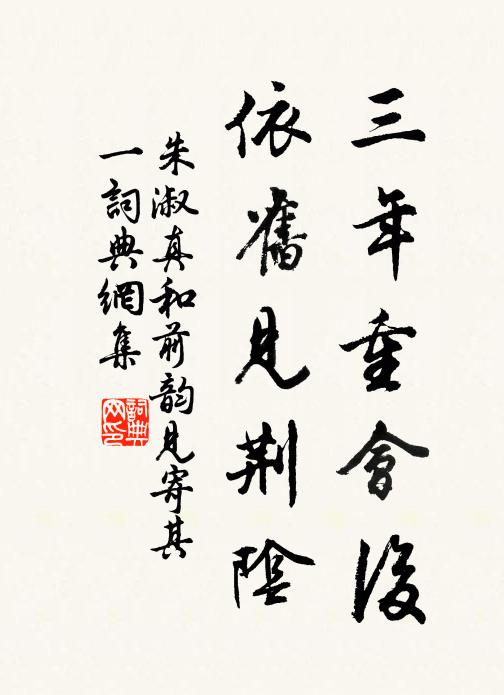 三年重會後
依舊見荆陰
朱淑真和前韵見寄其
一詞典網集
詞典
网印